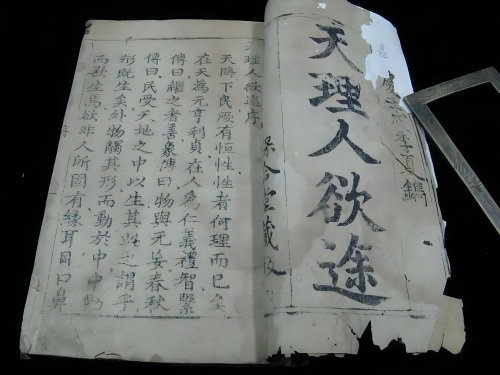 天理人欲途
保合堂藏板
天理人欲途序
天降下民厥有恒性性者何理而已矣
在天為元亨利貞在人為仁義禮智繫
傳曰繼之者善彖傳曰物與无妄春秋
傳曰民受天地之中以生其此之謂乎
形既生矣外物觸其形而動於中中動
而欲生焉欲非人所固有緣耳目口鼻